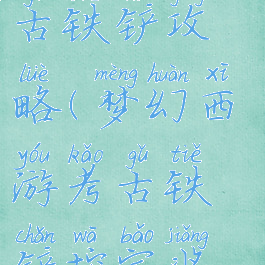 古铁铲攻
lüè mèng huàn xī
略(梦幻西
yóu kǎo gǔ tiě
游考古铁
chǎn wā bǎo jiǎng